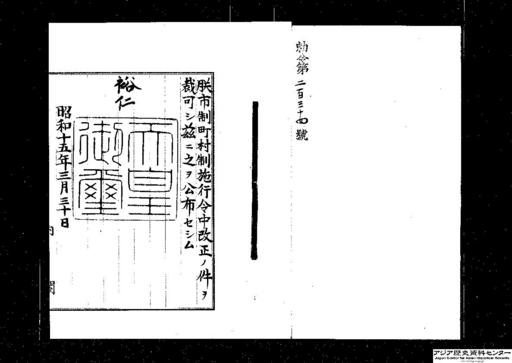 勅令第二百三十四號
朕市制町村制施行令中改正ノ件ヲ
裁可シ茲ニ之ヲ公布セシム
裕仁
天皇
御璽
昭和十五年三月三十日
内
閣
アジア歴史資料センター
Japan Center for Asian Historical Records